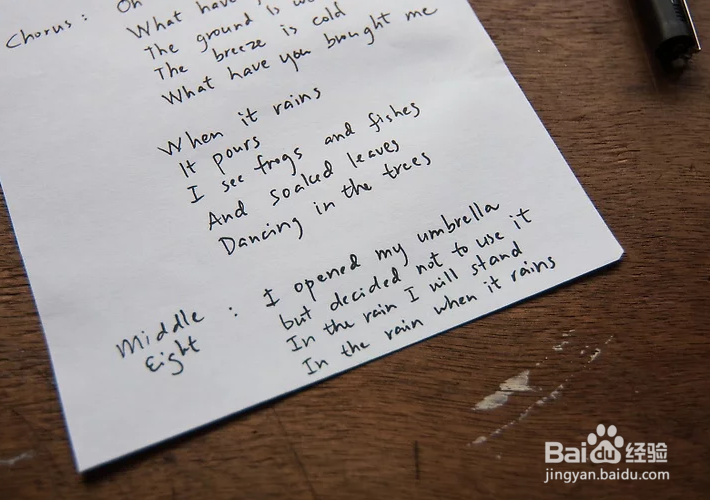 Chorus : Oh
What have
The ground is
The breeze is cold
What have you brought me
When it rains
It pours
I see frogs and fishes
And soaked leaves
Dancing in the trees
Middle Eight : I opened my umbrella
but decided not to use it
In the rain I will stand
In the rain when it rains
Baidu 经验
jingyan.baidu.com